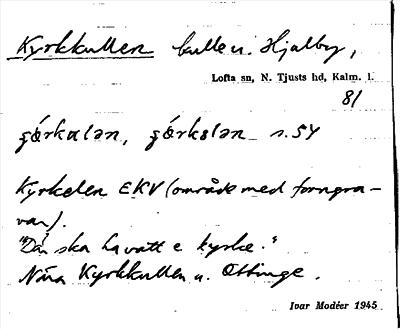 Kyrkkullen kulle u. Hjälby,
Lofta sn, N. Tjusts hd, Kalm. l.
81
s. 54
Kyrkelen EKV (område med forngra-
var).
"Där ska ha vatt e kyrke."
Nära Kyrkkullen u. Ottinge.
Ivar Modéer 1945